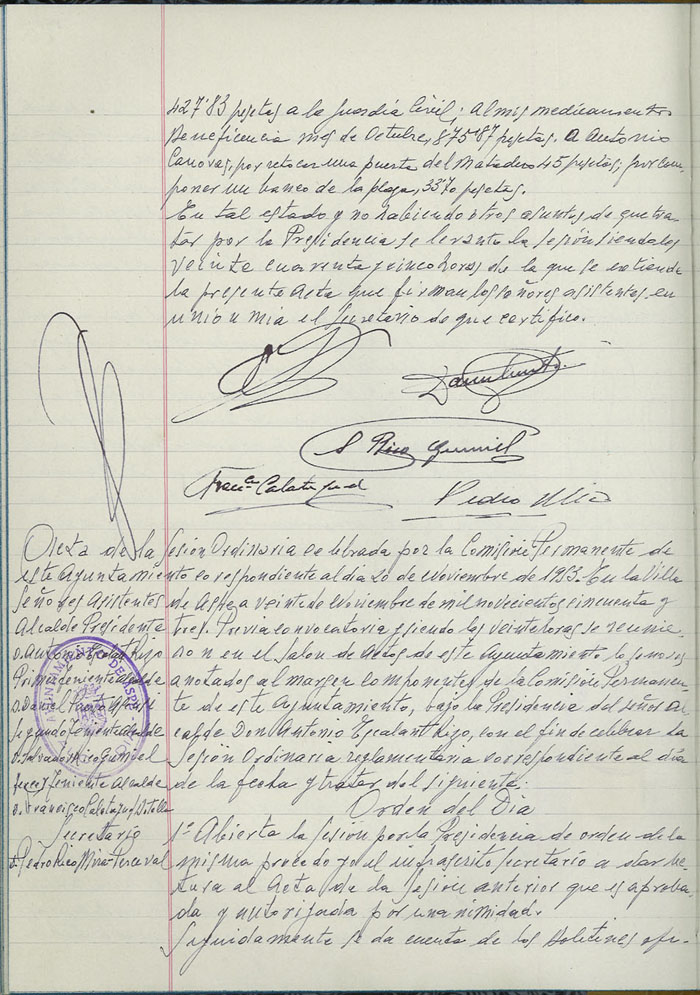 427'83 pesetas a la Guardia Civil; al mis medicamentos
Beneficencia mes de Octubre, 875'87 pesetas. A Antonio
Canovas, por retocar una puerta del Matadero 45 pesetas; por com-
poner un banco de la plaza, 33'70 pesetas.
En tal estado y no habiendo otros asuntos de que tra-
tar por la Presidencia se levanta la sesión siendo las
veinte cuarenta y cinco horas de la que se extiende
la presente Acta que firman los señores asistentes, en
unión a mia el Secretario de que certifico.
S Rico Gumiel
Franco Calatayud
Pedro Rico
Acta de la Sesion Ordinaria celebrada por la Comisión Permanente de
este Ayuntamiento correspondiente al dia 20 de Noviembre de 1953. En la Villa
Señores Asistentes
Alcalde Presidente
D. Antonio Escalant Hizo
Primer teniente Alcalde
D. Daniel
Segundo Teniente Alcalde
D. Salvador Rico Gumiel
Tercer Teniente Alcalde
D. Francisco Calatayud Botella
Secretario
D. Pedro Rico Mira-Perceval
AYUNTAMIENTO DE ASPE
de Aspe a veinte de Noviembre de mil novecientos cincuenta y
tres. Previa convocatoria y siendo las veinte horas se reunie-
ron en el Salon de Actos de este Ayuntamiento lo señores
anotados al margen componentes de la Comisión Permanen-
te de este Ayuntamiento, bajo la Presidencia del señor Al
calde Don Antonio Escalant Hizo, con el fin de celebrar la
Sesión Ordinaria reglamentaria correspondiente al dia
de la fecha y tratar del siguiente:
Orden del Dia
1º Abierta la Sesión por la Presidencia de orden de la
misma procedo yo el infrascrito Secretario a dar lec-
tura al Acta de la Sesion anterior que es aproba-
da y autorizada por unanimidad.
Seguidamente se da cuenta de los Boletines ofi-